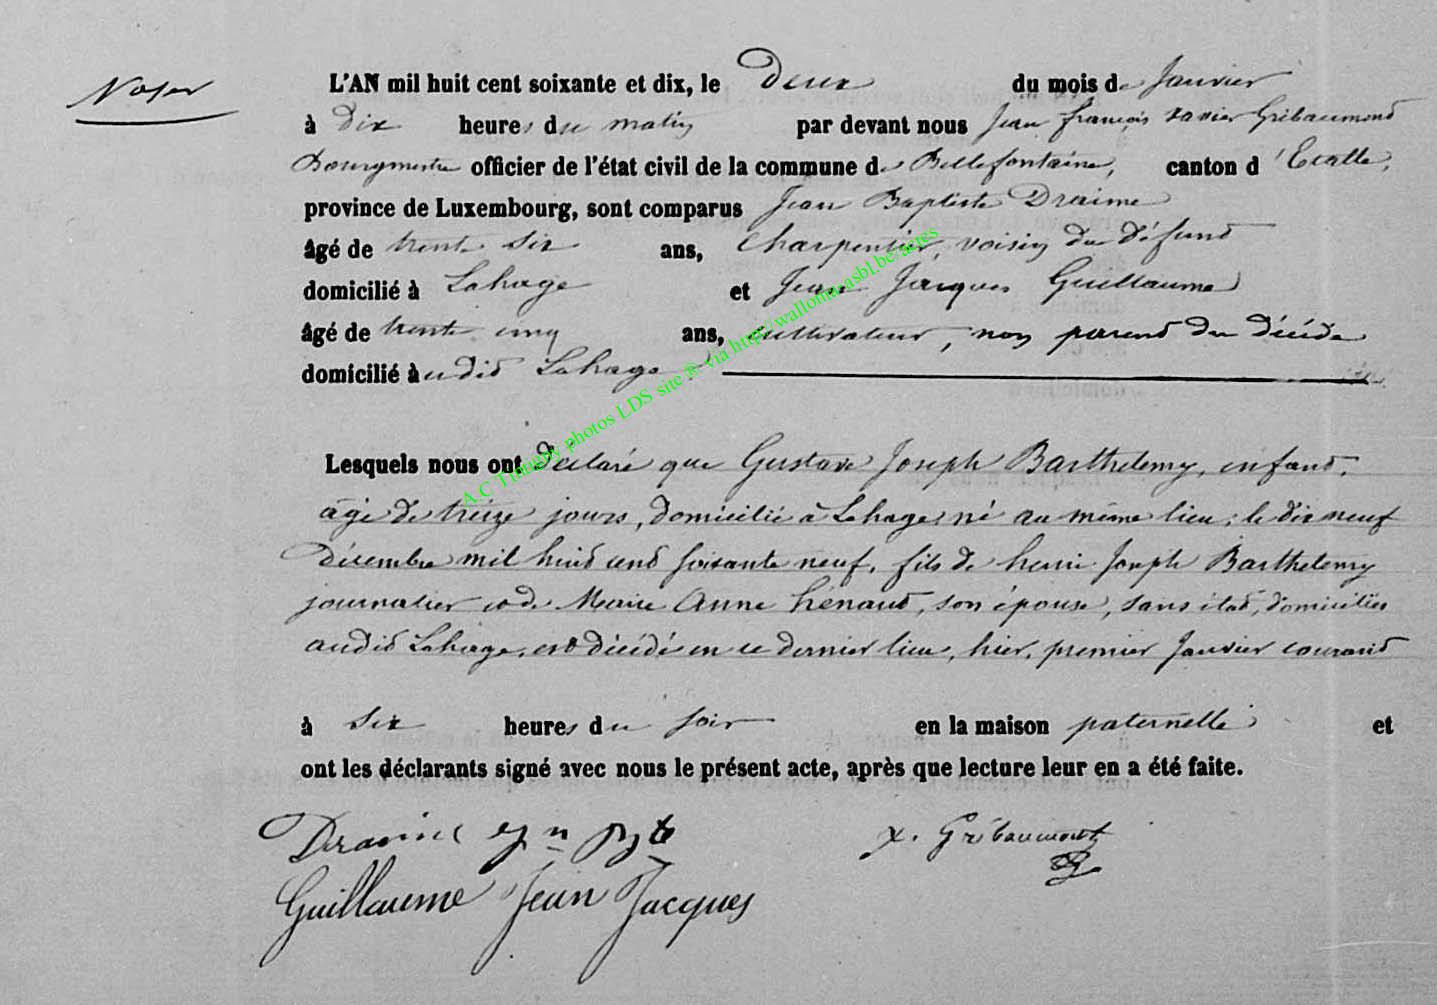 L'AN mil huit cent soixante et dix, le Deux du mois de Janvier
à Dix heures du matin par devant nous Jean françois xavier Gribaumont
Bourgmestre officier de l'état civil de la commune de Bellefontaine, canton d'Etalle,
province de Luxembourg, sont comparus Jean Baptiste Draime
âgé de trente six ans, charpentier, voisin du défunt
domicilié à Lahage et Jean Jacques Guillaume
âgé de trente cinq ans, cultivateur, non parent du décédé
domicilié audit Lahage
Lesquels nous ont déclaré que Gustave Joseph Barthelemy, enfant,
âgé de treize jours, domicilié à Lahage né au même lieu, le dix neuf
Décembre mil huit cent soixante neuf, fils de henri Joseph Barthelemy
journalier et de Marie Anne hénaut, son épouse, sans état, domiciliés
audit Lahage, est décédé en ce dernier lieu, hier, premier Janvier courant
à Six heures du soir en la maison paternelle et
ont les déclarants signé avec nous le présent acte, après que lecture leur en a été faite.
x. Gribaumont
Guillaume Jean Jacques
A.C Tintigny photos LDS site ® via http://wallonica.asbl.be/actes